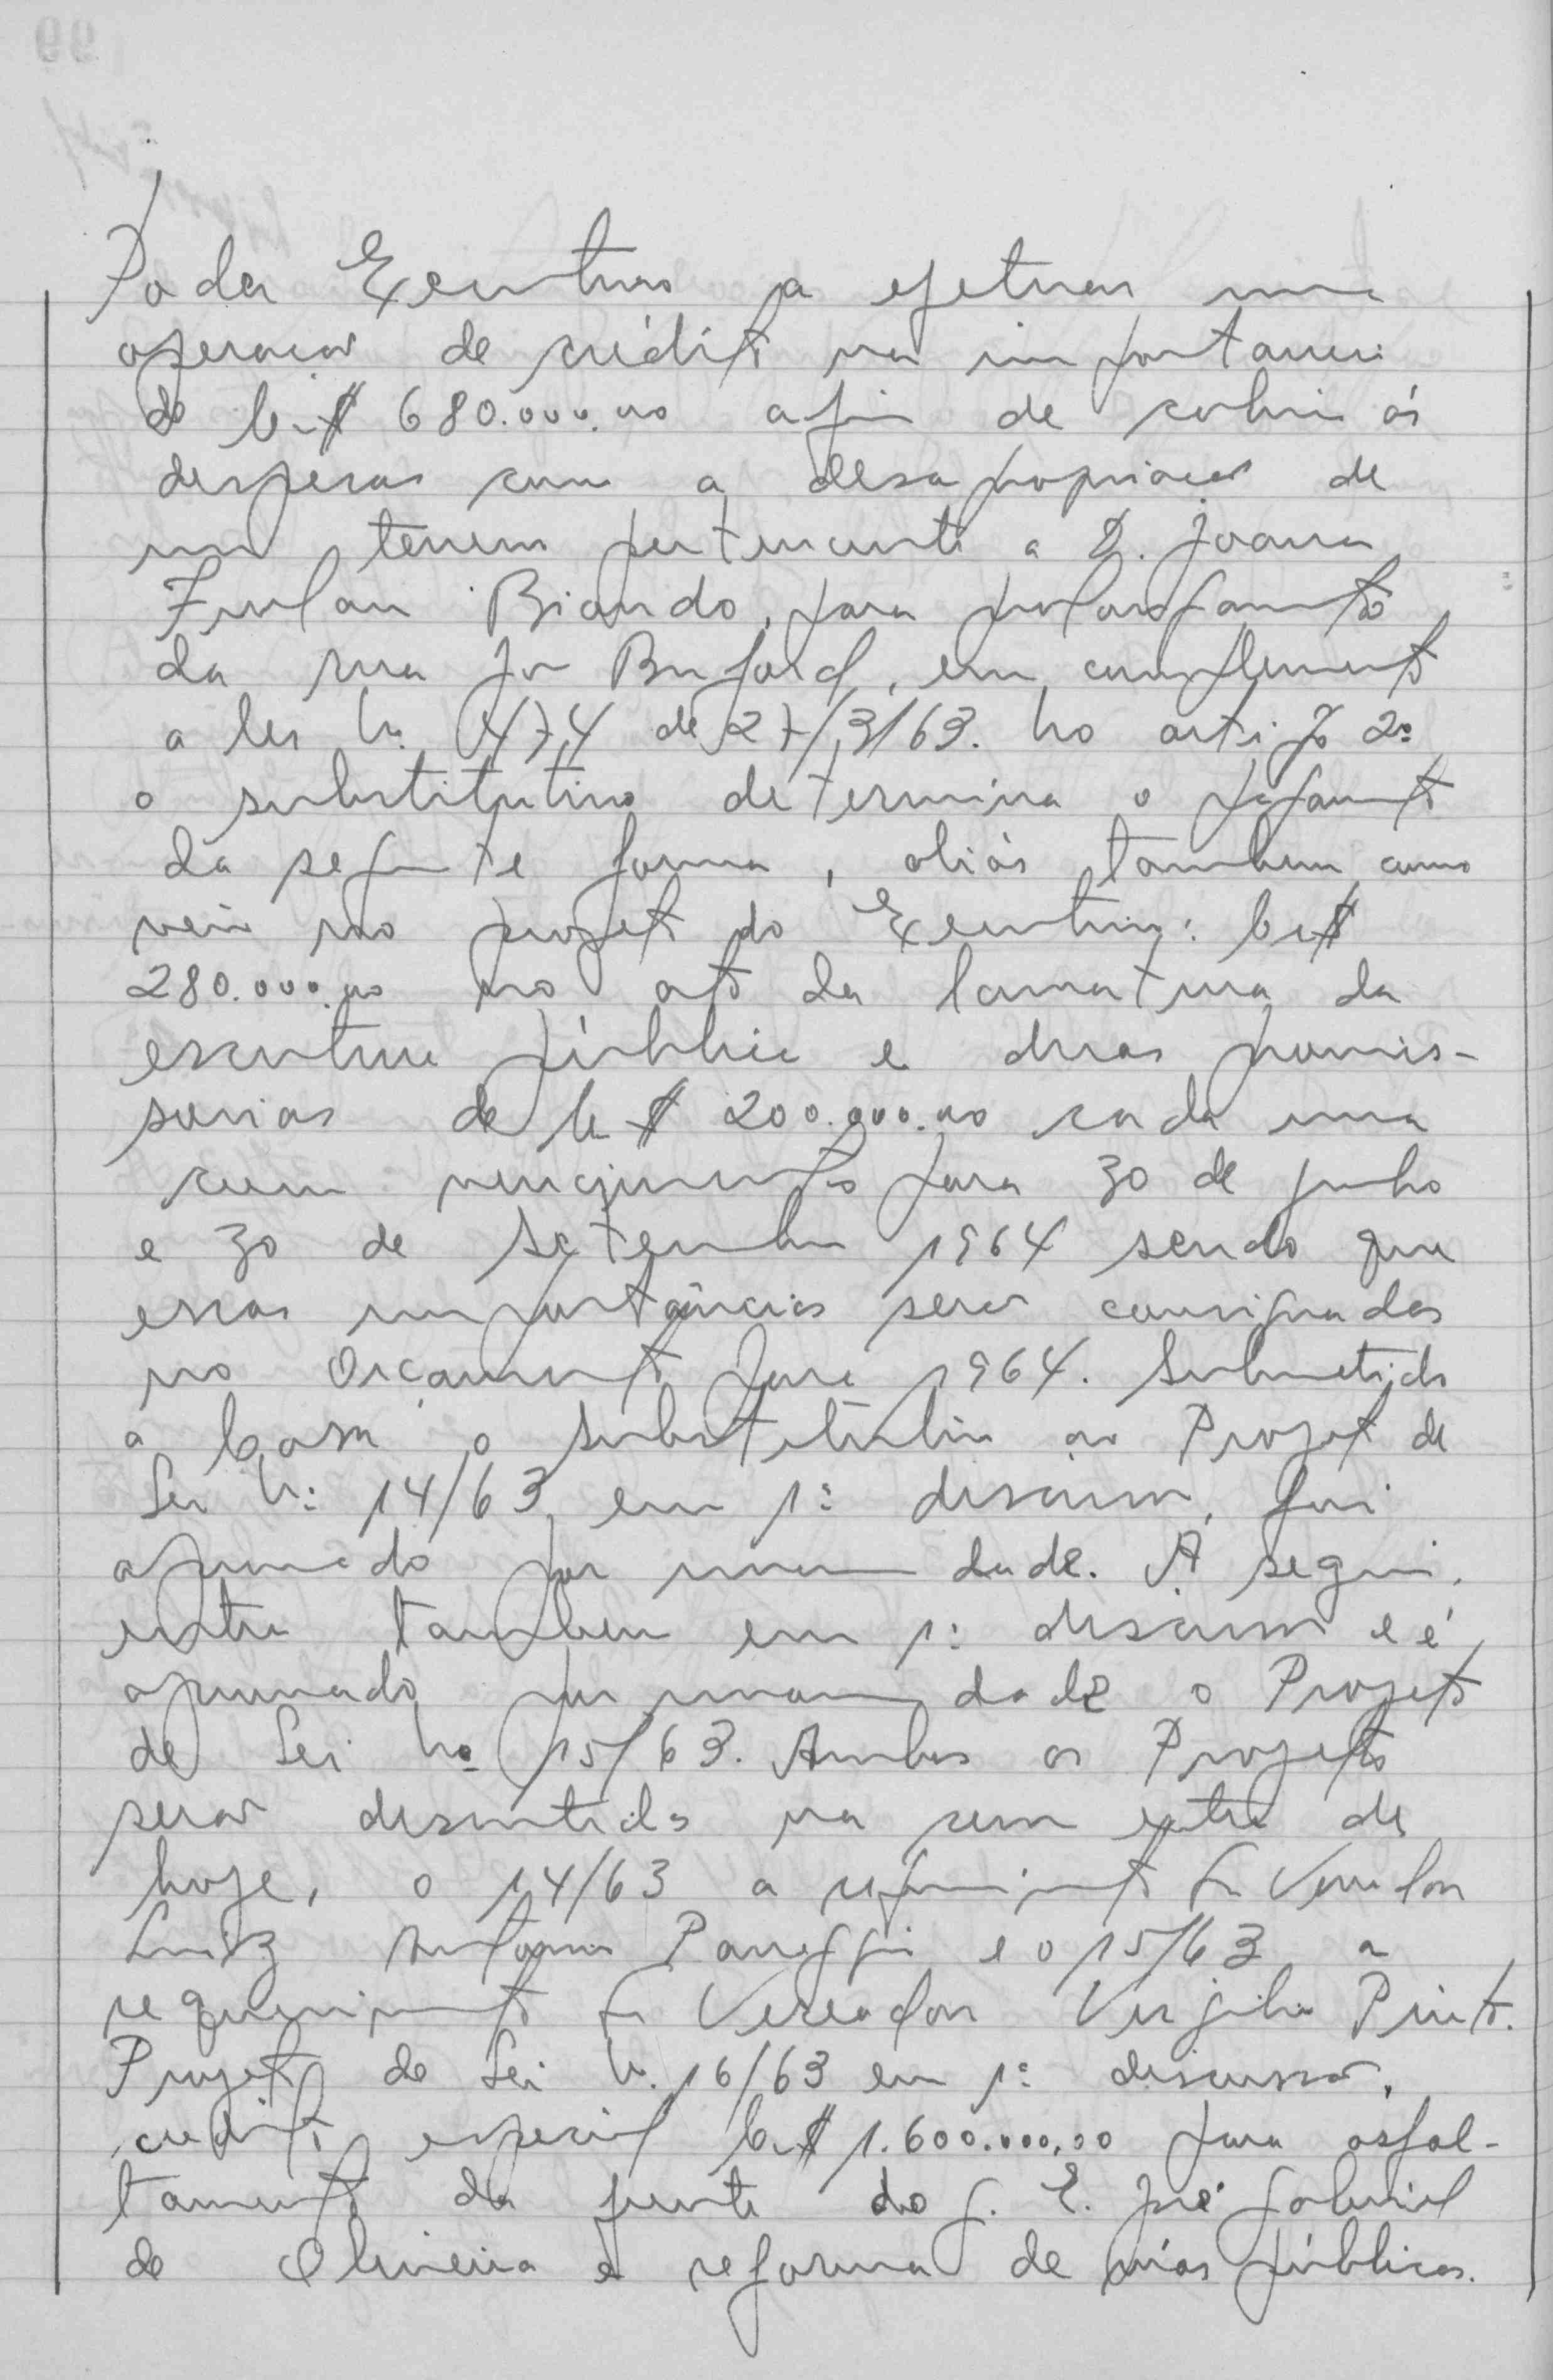 Poder Executivo a efetuar uma
operação de crédito na importancia
de Cr$ 680.000,00 afim de cobrir ás
despesas com a desapropriação de
um terreno pertencente a D. Joana
Furlan Biondo, para prolongamento
da rua Jon Buford, em cumplemento
a lei nº 474 de 27/3/63. No artigo 2º
o substitutivo determina o pagamento
da seguinte forma, aliás tambem como
veio no projeto do Executivo: Cr$
280.000,00 no ato da lavratura da
escritura pública e duas promis-
sorias de Cr$ 200.000,00 cada uma
com vencimento para 30 de junho
e 30 de Setembro 1964 sendo que
essas importâncias serão consignadas
no Orçamento para 1964. Submetido
á Casa o substitutivo ao Projeto de
Lei Nº 14/63 em 1ª discussão, foi
aprovado por unanimidade. A seguir,
entra tambem em 1ª discussão e é
aprovado por unanimidade o Projeto
de Lei Nº 15/63. Ambos os Projetos
serão discutidos na sessão extra de
hoje, o 14/63 a requerimento do Vereador
Luiz Antonio Paneggini e o 15/63 a
requerimento do Vereador Virgilio Pinto.
Projeto de Lei N. 16/63 em 1ª discussão,
credito especial Cr$ 1.600.000,00 para asfal-
tamento da frente do G. E. José Gabriel
de Oliveira e reforma de vias públicas.